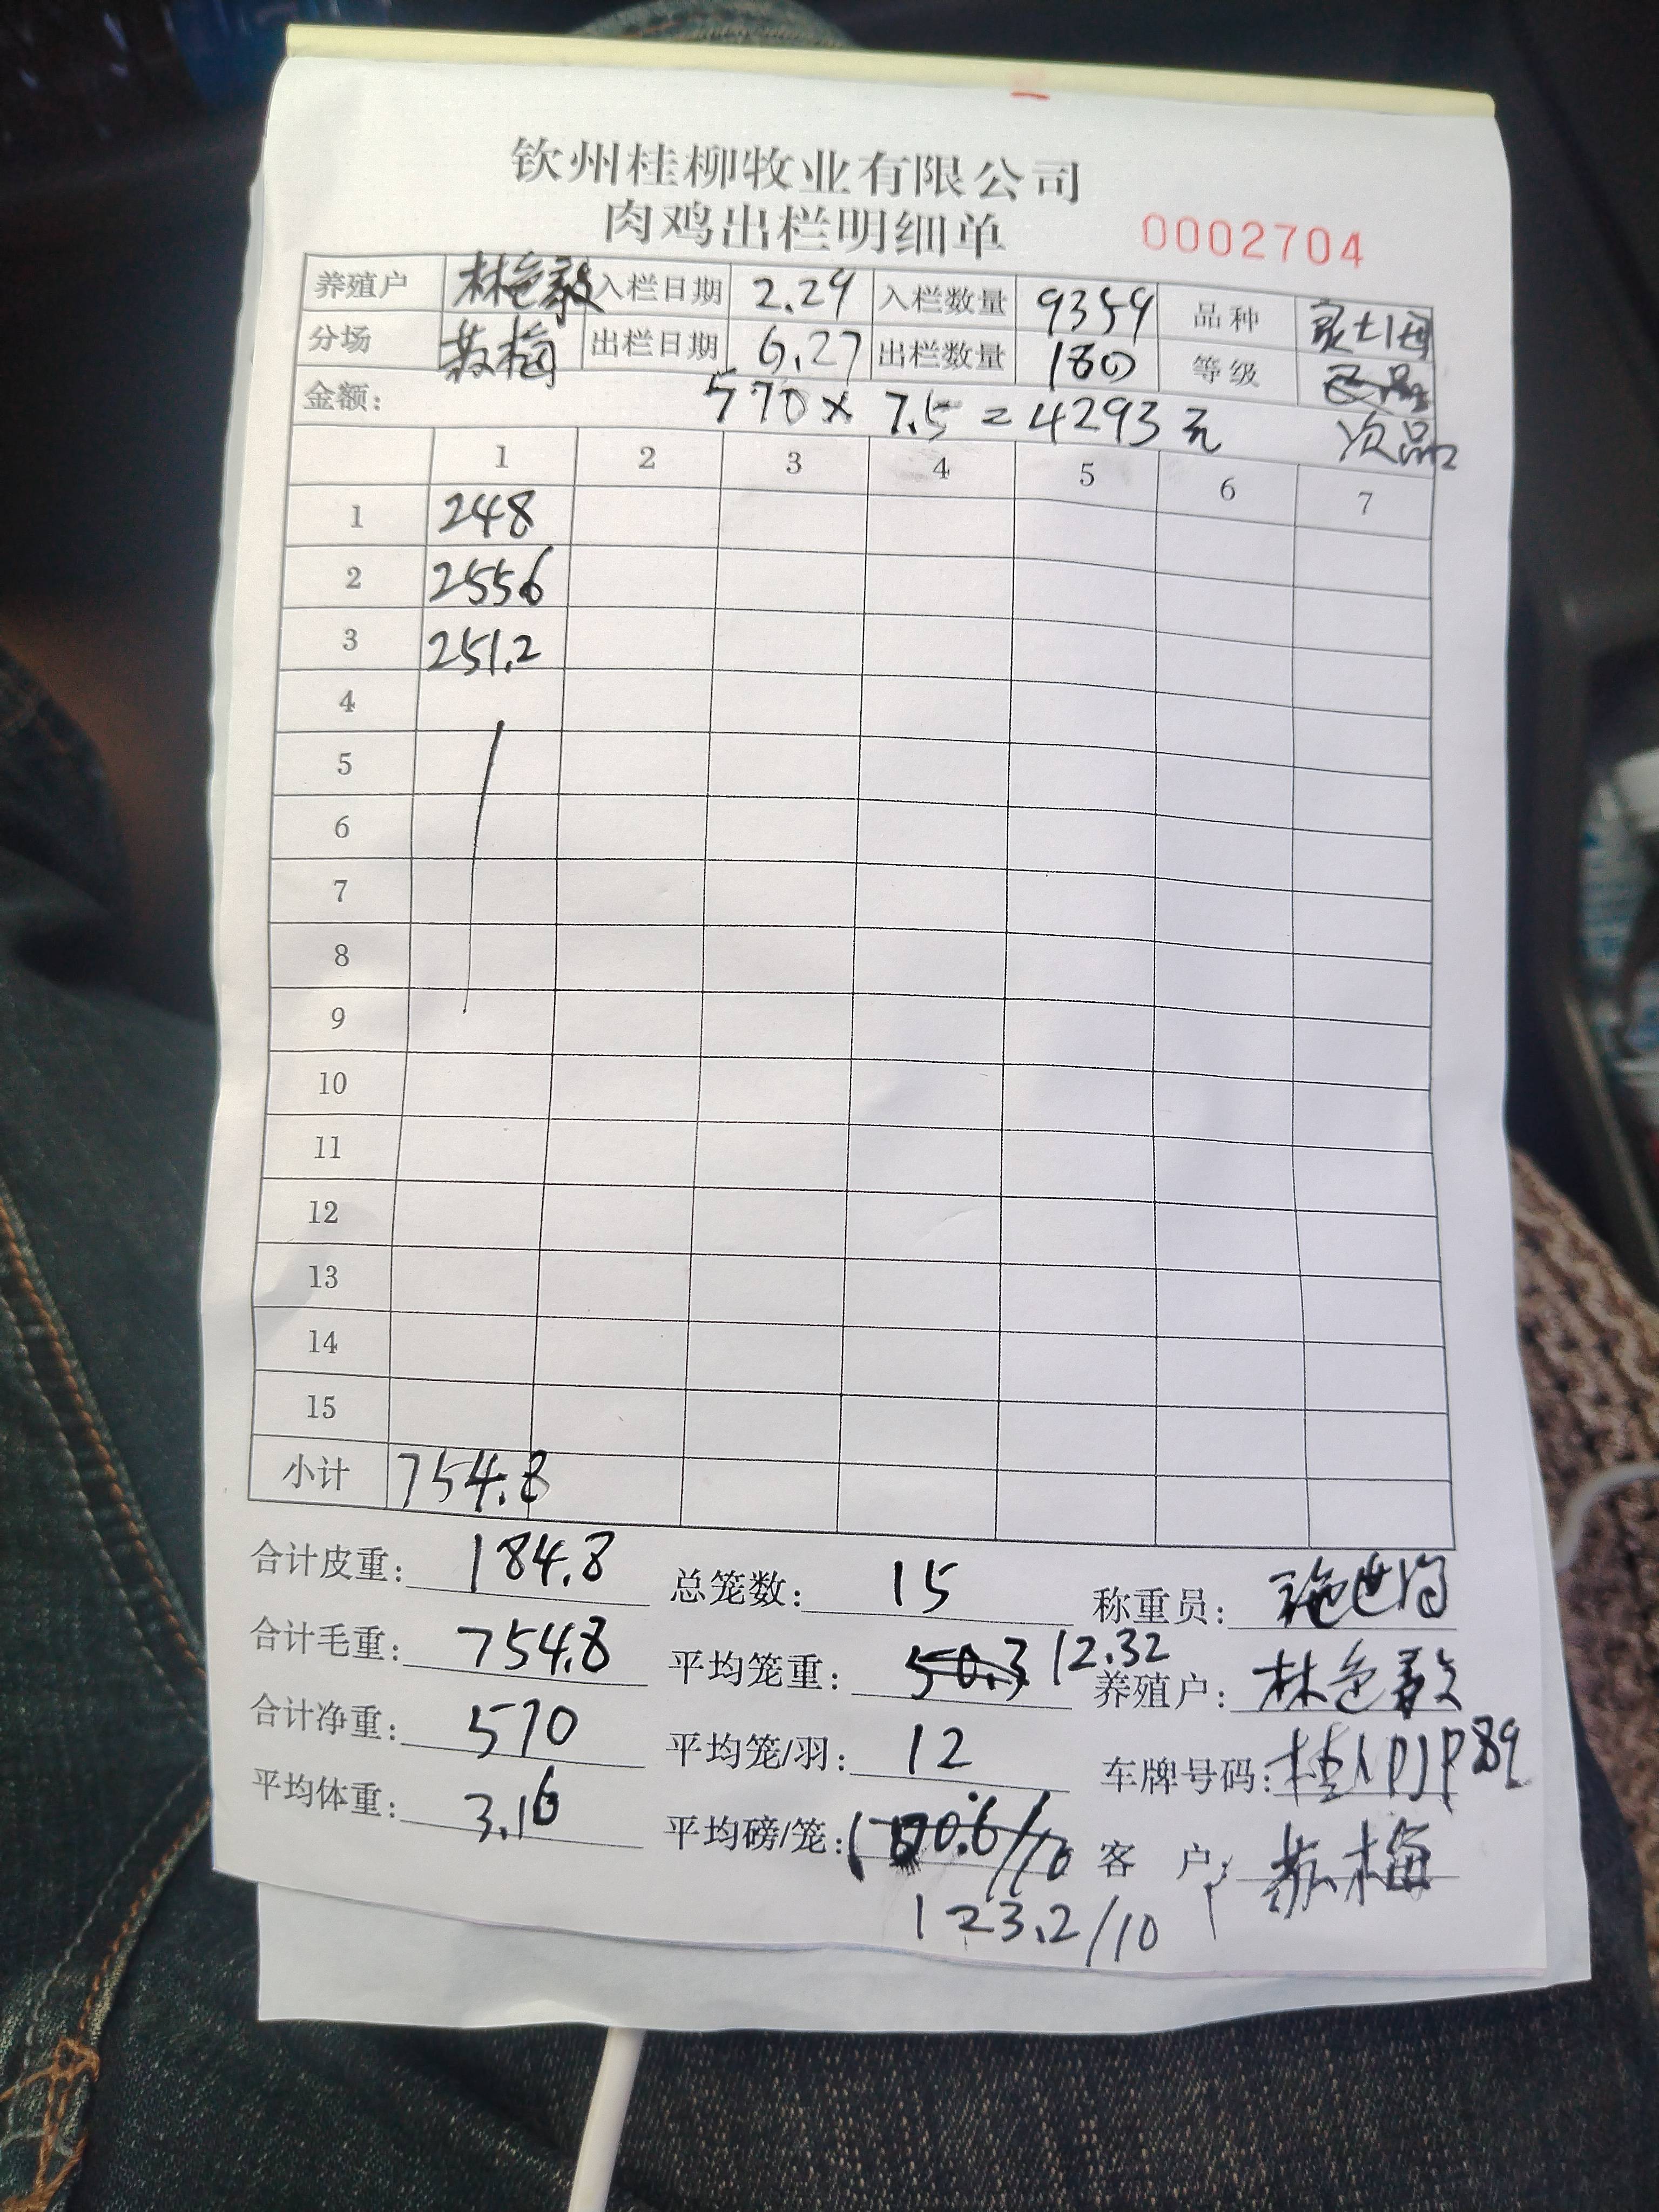 钦州桂柳牧业有限公司
肉鸡出栏明细单 0002704
养殖户 林色毅 入栏日期 2.29 入栏数量 9359 品种
分场 苏梅 出栏日期 6.27 出栏数量 180 等级
金额: 570 x 7.5 = 4293元 次品
1 2 3 4 5 6 7
1 248
2 255.6
3 251.2
4
5
6
7
8
9
10
11
12
13
14
15
小计 754.8
合计皮重: 184.8 总笼数: 15 称重员:
合计毛重: 754.8 平均笼重: 50.3 12.32 养殖户: 林色毅
合计净重: 570 平均笼/羽: 12 车牌号码:
平均体重: 3.16 平均磅/笼: 客 户: 苏梅
123.2/10